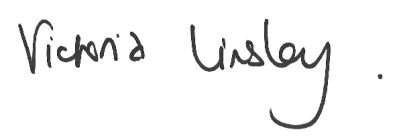 Victoria Linsley.